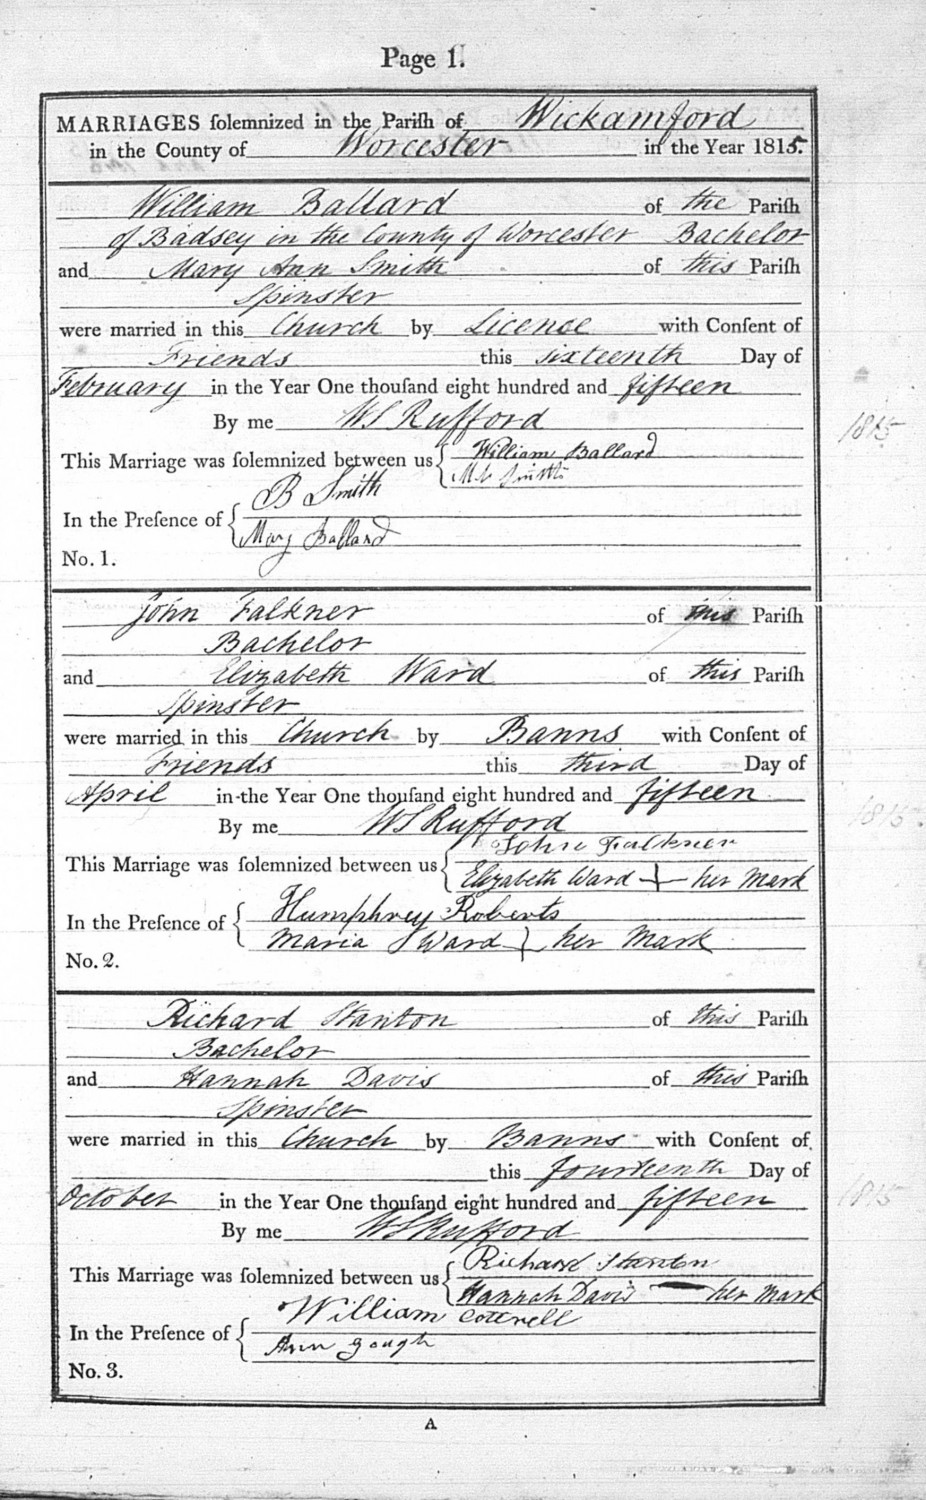 Page 1.
MARRIAGES ſolemnized in the Pariſh of Wickamford
in the County of Worcester in the Year 1815.
William Ballard of the Pariſh
of Badsey in the County of Worcester Bachelor
and Mary Ann Smith of this Pariſh
Spinster
were married in this Church by License with Conſent of
Friends this sixteenth Day of
February in the Year One thouſand eight hundred and fifteen
By me WS Rufford
1815
This Marriage was ſolemnized between us { William Ballard
Smith
In the Preſence of { B Smith
Mary Ballard
No. 1.
John Falkner of this Pariſh
Bachelor
and Elizabeth Ward of this Pariſh
Spinster
were married in this Church by Banns with Conſent of
Friends this third Day of
April in the Year One thouſand eight hundred and fifteen
1815.
By me WS Rufford
This Marriage was ſolemnized between us { John Falkner
Elizabeth Ward + her Mark
In the Preſence of { Humphrey Roberts
Maria Ward } her Mark
No. 2.
Richard Stanton of this Pariſh
Bachelor
and Hannah Davis of this Pariſh
Spinster
were married in this Church by Banns with Conſent of
this fourteenth Day of
October in the Year One thouſand eight hundred and fifteen
1815
By me WS Rufford
This Marriage was ſolemnized between us { Richard Stanton
Hannah Davis — her Mark
In the Preſence of { William Cottrell
Ann Gough
No. 3.
A